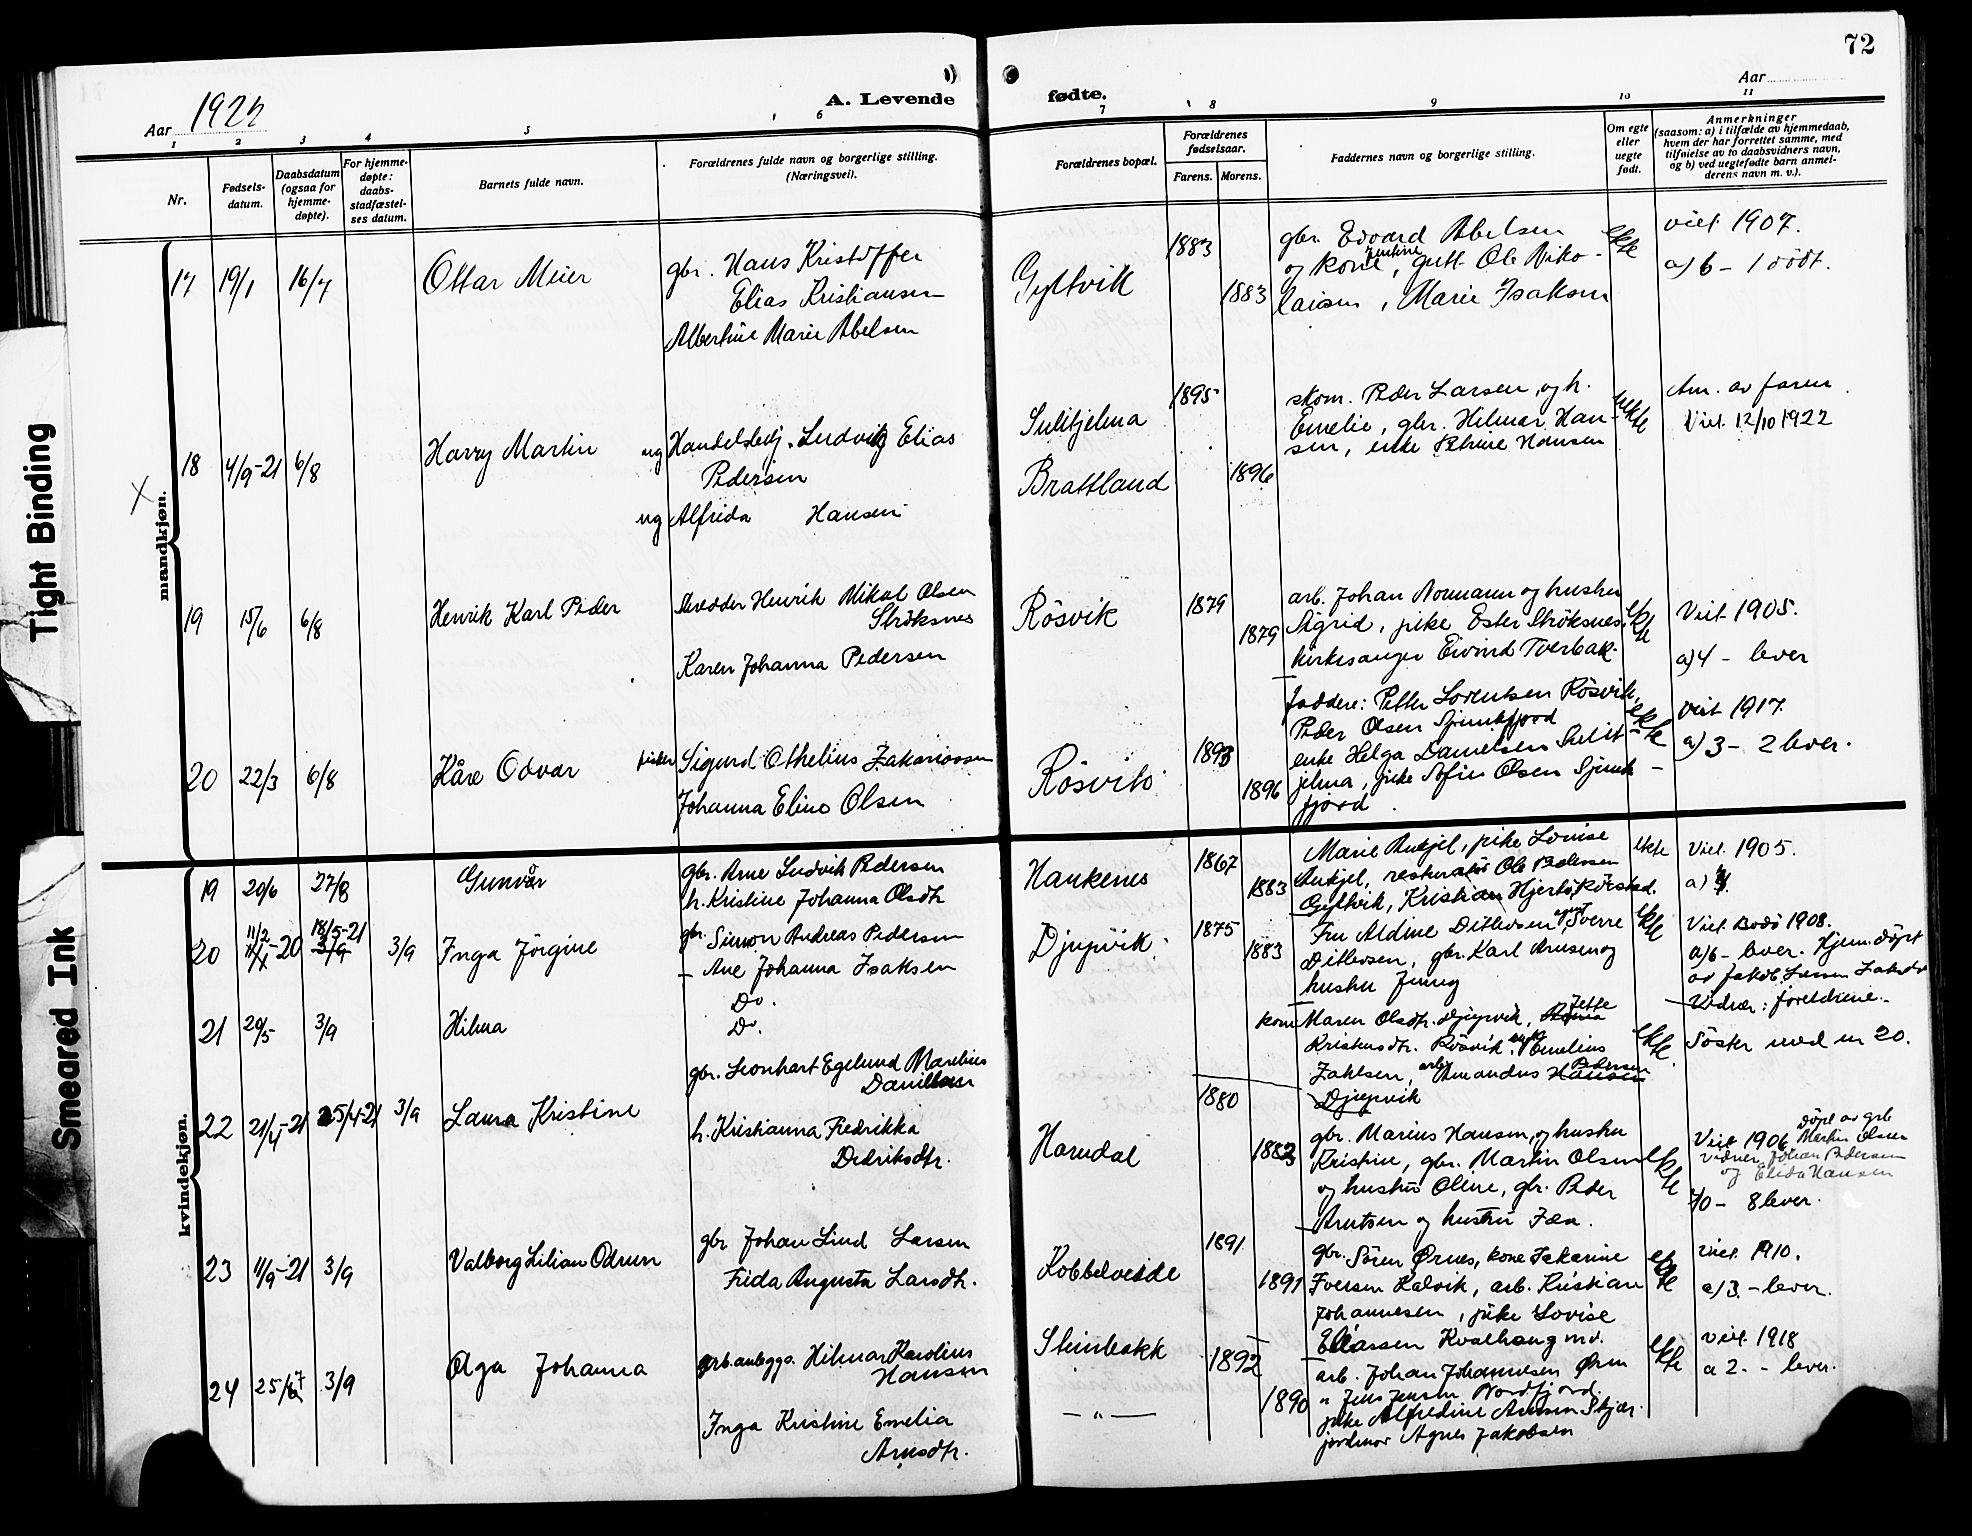 72
Aar 1922
A. Levende
fødte.
Aar
1
2
3
4
5
6
7
8
9
10
11
Nr.
Fødsels-
datum.
Daabsdatum
(ogsaa for
hjemme-
døpte).
For hjemme-
døpte:
daabs-
stadfæstel-
ses datum.
Barnets fulde navn.
Forældrenes fulde navn og borgerlige stilling.
(Næringsvei).
Forældrenes bopæl.
Forældrenes
fødselsaar.
Farens.
Morens.
Faddernes navn og borgerlige stilling.
Om egte
eller
uegte
født.
Anmerkninger
(saasom: a) i tilfælde av hjemmedaab,
hvem der har forrettet samme, med
tilføielse av to daabsvidners navn,
og b) ved uegtefødte barn anmel-
derens navn m. v.).
mandkjøn.
17 19/1 16/7 Ottar Meier
gbr. Hans Kristoffer
Elias Kristiansen
Albertine Marie Abelsen
Gyltvik
1883
1883
gbr. Edvard Abelsen
og kone, gutt Ole Niko-
laisen, Marie Isaksen
ekte
viet 1907.
a) 6 - 1 dødt.
X
18 4/9-21 6/8 Harry Martin
ug Handelsbetj. Ludvik Elias
Pedersen
ug Alfrida Hansen
Sulitjelma
Brattland
1895
1896
skom. Peder Larsen, og h.
Emelie, gbr. Hilmar Han-
sen, enke Petrine Hansen
ekte
Anm. av faren
Viet 12/10 1922
19 15/6 6/8 Henrik Karl Peder
Skredder Henrik Mikal Olsen
Strøksnes
Karen Johanna Pedersen
Røsvik
1879
1879
arb. Johan Normann og hustru
Sigrid, pike Ester Strøksnes,
kirkesanger Eivind Tverbak.
ekte
Viet 1905.
a) 4 - lever
20 22/3 6/8 Kåre Odvar
fisker Sigurd Othelius Zakariassen
Johanna Eline Olsen
Røsvik
1893
1896
faddere: Petter Lorentsen Røsvik,
Peder Olsen Sjunkfjord
enke Helga Danielsen Sulit
jelma, pike Sofie Olsen Sjunk
fjord
ekte
viet 1917.
a) 3 - 2 lever.
kvindekjøn.
19 20/6 27/8 Gunvår
gbr. Arne Ludvik Pedersen
h. Kristine Johanna Olsdtr.
Nankenes
1867
1883
Marie Ankjel, pike Lovise
Ankjel, Ole Pedersen
Gyltvik, Kristian Hjertø, Rørstad.
ekte
Viet 1905.
20 11/2-20 18/5-21 3/9 Inga Jørgine
gbr. Simon Andreas Pedersen
Ane Johanna Isaksen
Djupvik
1875
1883
Fru Aldine Ditlevsen, Sverre
Ditlevsen, gbr. Karl Arnsen og
hustru Jenny
ekte
Viet Bodø 1908.
a/6 - lever. Hjem. døpt
av Jakob Larsen
Vidner: foreldrene.
21 20/5 3/9 Hilma
Do.
Do.
kone Maren Olsdtr. Djupvik, Jette
Kristensdtr. Røsvik, Emelius
Zahlsen, arb. Amandus Hansen Pedersen
Djupvik
ekte.
Søster med nr 20.
22 21/4-21 25/4-21 3/9 Laura Kristine
gbr. Leonhart Egelund Marelius
Danielsen
h. Kristianna Fredrikka
Dedriksdtr.
Harudal
1880
1883
gbr. Marius Hansen, og hustru
Kristine, gbr. Martin Olsen
og hustru Oline, gbr. Peder
Arntsen og hustru Fæa.
ekte
Viet 1906 Døpt av grb
Martin Olsen
vidner Johan Pedersen
og Elida Hansen
- 8 lever.
23 11/9-21 3/9 Valborg Lilian Odrun
gbr Johan Lind Larsen
Frida Augusta Larsdtr.
Kobbelveide
1891
1891
gbr. Søren Ørnes, kone Zakarine
Iversen Kalvik, arb. Kristian
Johannesen, pike Lovise
Eliassen Kvalhaug m.v.
ekte
viet 1910.
a) 3. - lever.
24 25/7 3/9 Olga Johanna
arb. anlegga. Hilmar Karolius
Hansen
Inga Kristine Emelia
Arnsdtr.
Steinbakk
- " -
1892
1890
arb. Johan Johannesen Ørn
" Jens Jensen Nordfjord.
pike Alfredine Arnsen Skjær.
jordmor Agnes Jakobsen
ekte
viet 1918
a 2. - lever.
Tight Binding
Smeared Ink